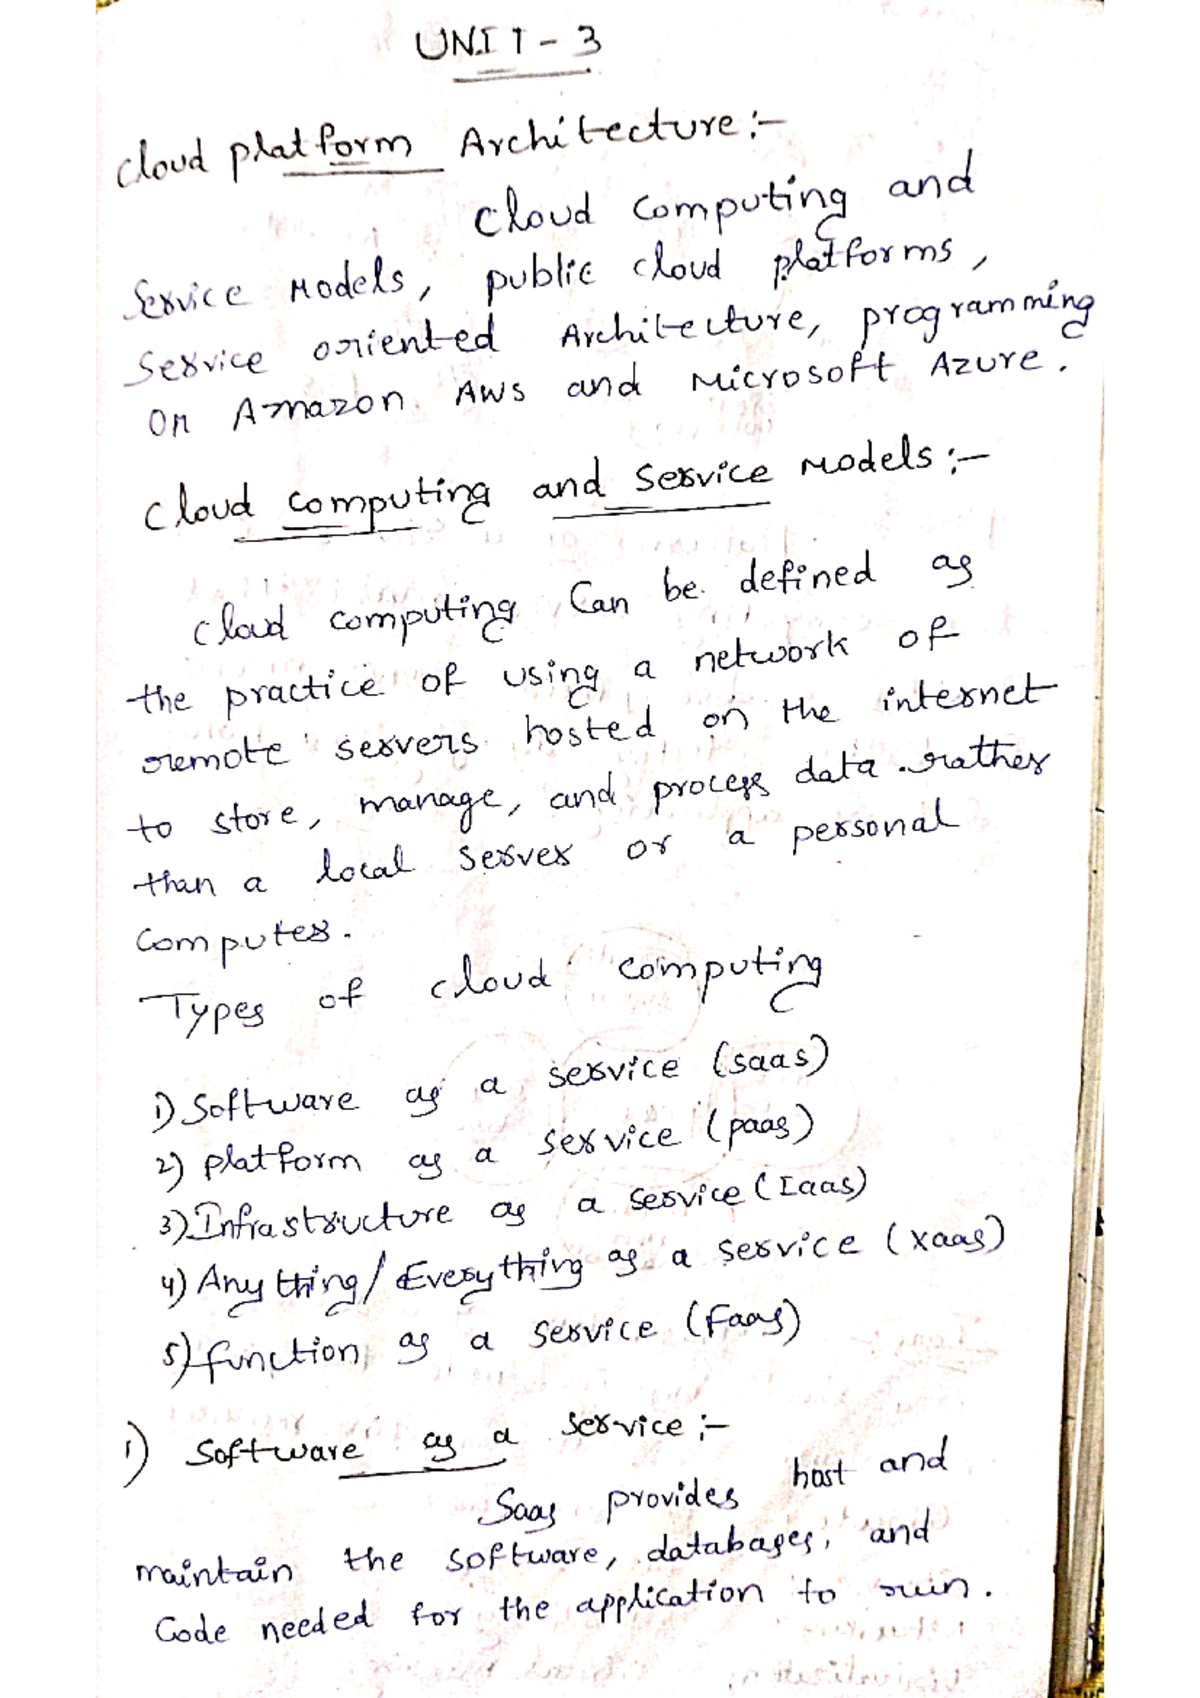 UNIT - 3
Cloud platform Architecture :-
Cloud Computing and
Service Models, public cloud platforms,
Service oriented Architecture, programming
On Amazon AWS and Microsoft Azure.
Cloud computing and Service Models :-
Cloud computing Can be defined as
the practice of using a network of
remote servers hosted on the internet
to store, manage, and process data rather
than a local server or a personal
Computer.
Types of cloud computing
1) Software as a service (saas)
2) platform as a service (paas)
3) Infrastructure as a service (Iaas)
4) Any thing / Everything as a service (xaas)
5) function as a service (Faas)
1) Software as a service :-
Saas provides host and
maintain the software, databases, and
Code needed for the application to ruin.